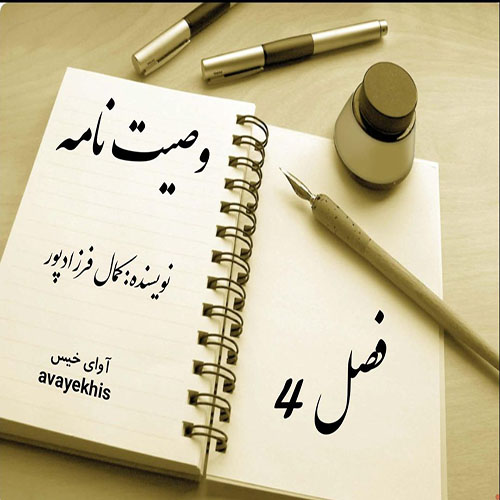 وصیت نامه
نویسنده: کمال فرزادپور
آوای خیس
avayekhis
فصل 4